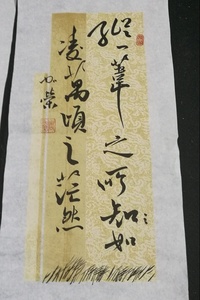 縱一葦之所知如
凌萬頃之茫然